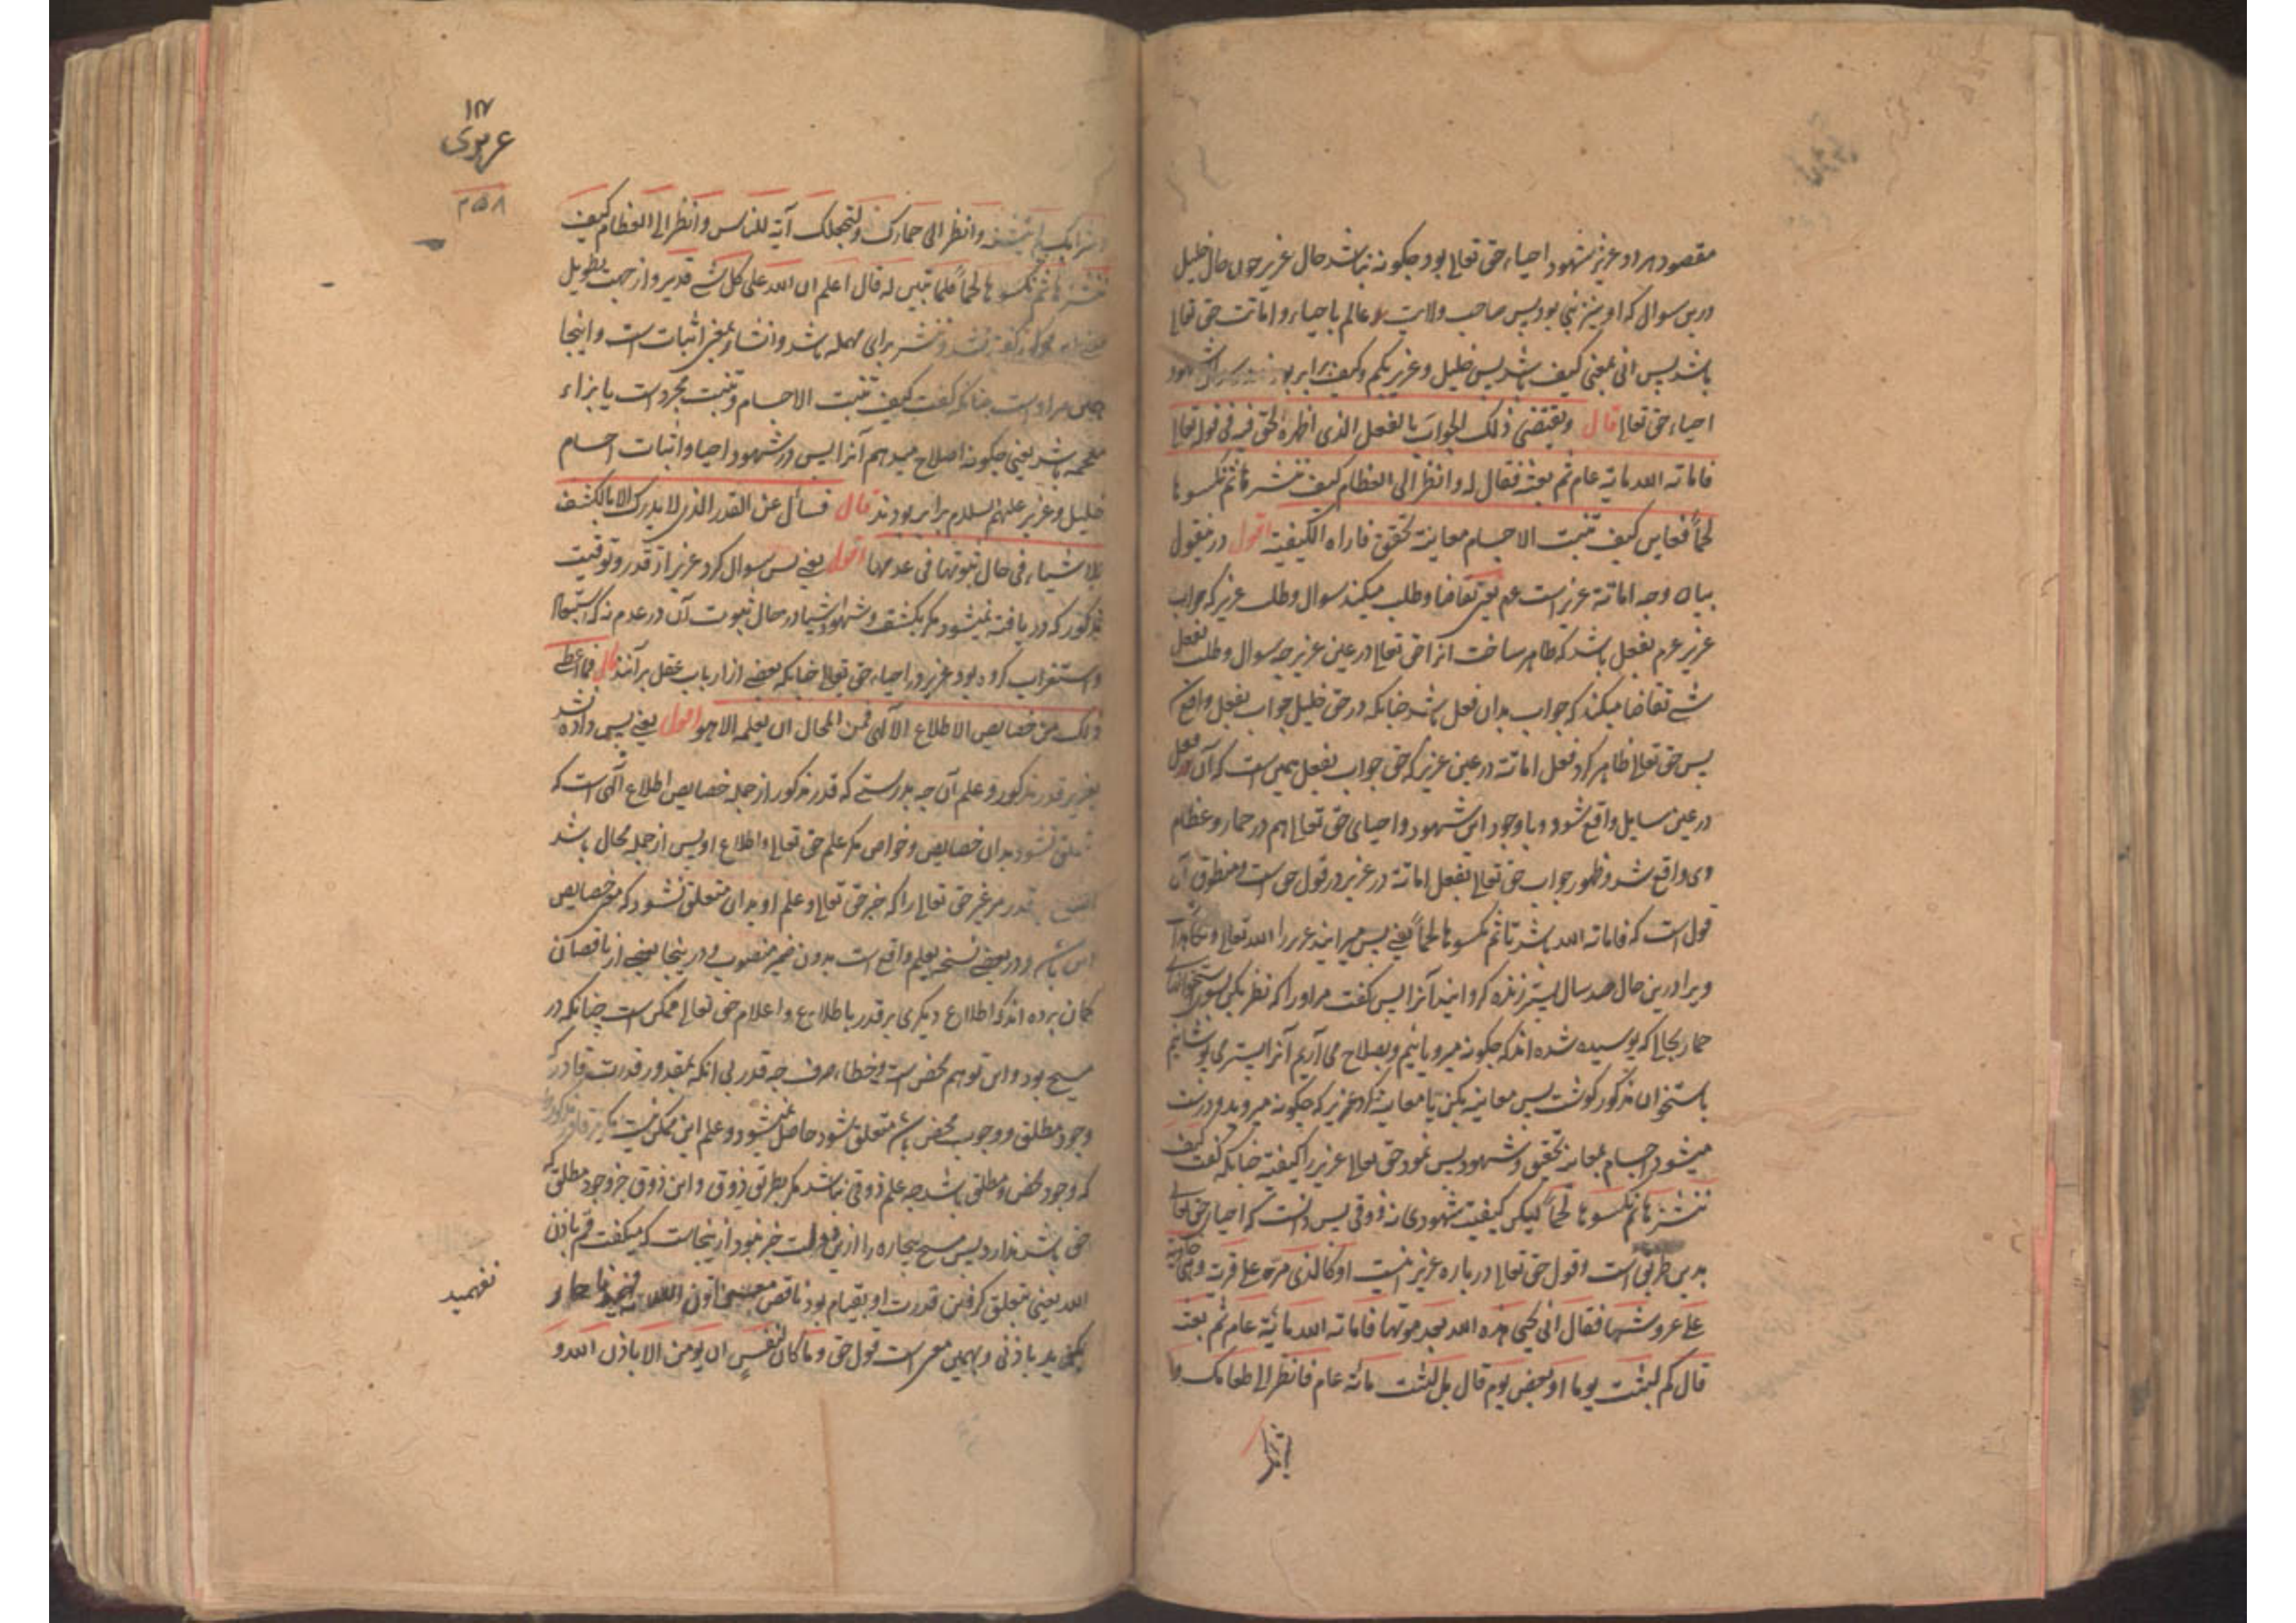 مقصود مراد عزیر شهود احیاء حق تعالی بود چگونه نباشد حال عزیر چون حال خلیل
درین سوال که او نیز نبی بود پس صاحب ولایت عالم باحیاء و اماتت حق تعالی
باشد پس انی بمعنی کیف باشد پس خلیل و عزیر بکم و کیف برابر
احیاء حق تعالی قال ویقتضی ذلک الجواب بالفعل الذی اظهره الحق فیه فی قوله تعالی
فاماته الله مایة عام ثم بعثه فقال له وانظر الی العظام کیف ننشزها ثم نکسوها
لحماً فعاین کیف تنبت الاجسام معاینة تحقیق فاراه الکیفیة اقول درین قول
بیان وجه اماتة عزیر است عم یعنی تقاضا و طلب میکند سوال و طلب عزیر که جواب
عزیر عم بفعل باشد که ظاهر ساخت آنرا حق تعالی در عین عزیر چه سوال و طلب بفعل
شئ تقاضا میکند که جواب بدان فعل باشد چنانکه در حق خلیل جواب بفعل واقع
پس حق تعالی ظاهر کرد فعل اماتة در عین عزیر که حق جواب بفعل همین است که آن فعل
در عین سایل واقع شود و با وجود این شهود و احیای حق تعالی هم در حمار و عظام
وی واقع شد و ظهور جواب حق تعالی بفعل اماتة در عزیر در قول حق است و منطوق آن
قول است که فاماته الله باشد تا ثم نکسوها لحماً یعنی پس میرانید عزیر را الله تعالی و
ویرا درین حال صد سال پستر زنده گردانید آنرا پس گفت مر او را که نظر بکن بسوی استخوانهای
حمار بجای که پوسیده شده اند که چگونه میرویانیم و بصلاح می آریم آنرا پستر می پوشانیم
باستخوان مذکور گوشت پس معاینه بکن یا معاینه کرد عزیر که چگونه میروید و درست
میشود اجسام بمعاینه تحقیق و شهود پس نمود حق تعالی عزیر را کیفیة چنانکه گفت کیف
ننشزها ثم نکسوها لحماً لیکن کیفیت شهودی نه ذوقی پس دانست که احیای حق تعالی
بدین طریق است و قول حق تعالی درباره عزیر اینست او کالذی مر علی قریة وهی خاویة
علی عروشها فقال انی یحیی هذه الله بعد موتها فاماته الله مائة عام ثم بعثه
قال کم لبثت یوما او بعض یوم قال بل لبثت مائة عام فانظر الی طعامک و
وانظر الی حمارک ولنجعلک آیة للناس وانظر الی العظام کیف
ننشزها ثم نکسوها لحماً فلما تبین له قال اعلم ان الله علی کل شئ قدیر و از جهت تطویل
گفته نشد و ننشر برای مهمله باشد و انشار بمعنی اثبات است و اینجا
همین مراد است چنانکه گفت کیف تنبت الاجسام و تنبت مجرد است یا بزاء
معجمه باشد یعنی چگونه اصلاح میدهم آنرا پس در شهود احیا و اثبات اجسام
خلیل و عزیر علیهم السلام برابر بودند قال فسأل عن القدر الذی لا یدرک الا بالکشف
للاشیاء فی حال ثبوتها فی عدمها اقول یعنی پس سوال کرد عزیر از قدر و توقیت
مذکور که دریافته نمیشود مگر بکشف و شهود اشیا در حال ثبوت آن در عدم نه که استبعاد
و استغراب کرده بود عزیر در احیاء حق تعالی چنانکه بعضی از ارباب عقل برآنند قال فما اعطی
ذلک من خصایص الاطلاع الالهی فمن المحال ان یعلمه الا هو اقول یعنی پس داده نشد
بعزیر قدر مذکور و علم آن چه بدرستی که قدر مذکور از جمله خصایص اطلاع الهی است که
متعلق نشود بدان خصایص و خواص مگر علم حق تعالی و اطلاع او پس از جمله محال باشد
قدر مر غیر حق تعالی را که جز حق تعالی و علم او بدان متعلق نشود که معنی خصایص
این باشد و در بعضی نسخه یعلم واقع است بدون ضمیر منصوب و در ینجا بعضی از ناقصان
گمان برده اند که اطلاع دیگری بر قدر باطلاع و اعلام حق تعالی ممکن است چنانکه در
مسیح بود و این توهم محض است و خطاء صرف چه قدر بی آنکه بمقدور قدرت قادر که
وجود مطلق و وجوب محض باشد متعلق شود حاصل نمیشود و علم این ممکن نیست مگر مر قادر مذکور را
که وجود محض و مطلق باشد چه علم ذوقی نباشد مگر بطریق ذوق و این ذوق جز وجود مطلق که
حق باشد ندارد پس مسیح بیچاره را ازین خبر نبود ازینجاست که میگفت قم باذن
الله یعنی بتعلق گرفتن قدرت او بقیام
باذنی و بهمین معنی است قول حق و ما کان لنفس ان تؤمن الا باذن الله و
نفهمید